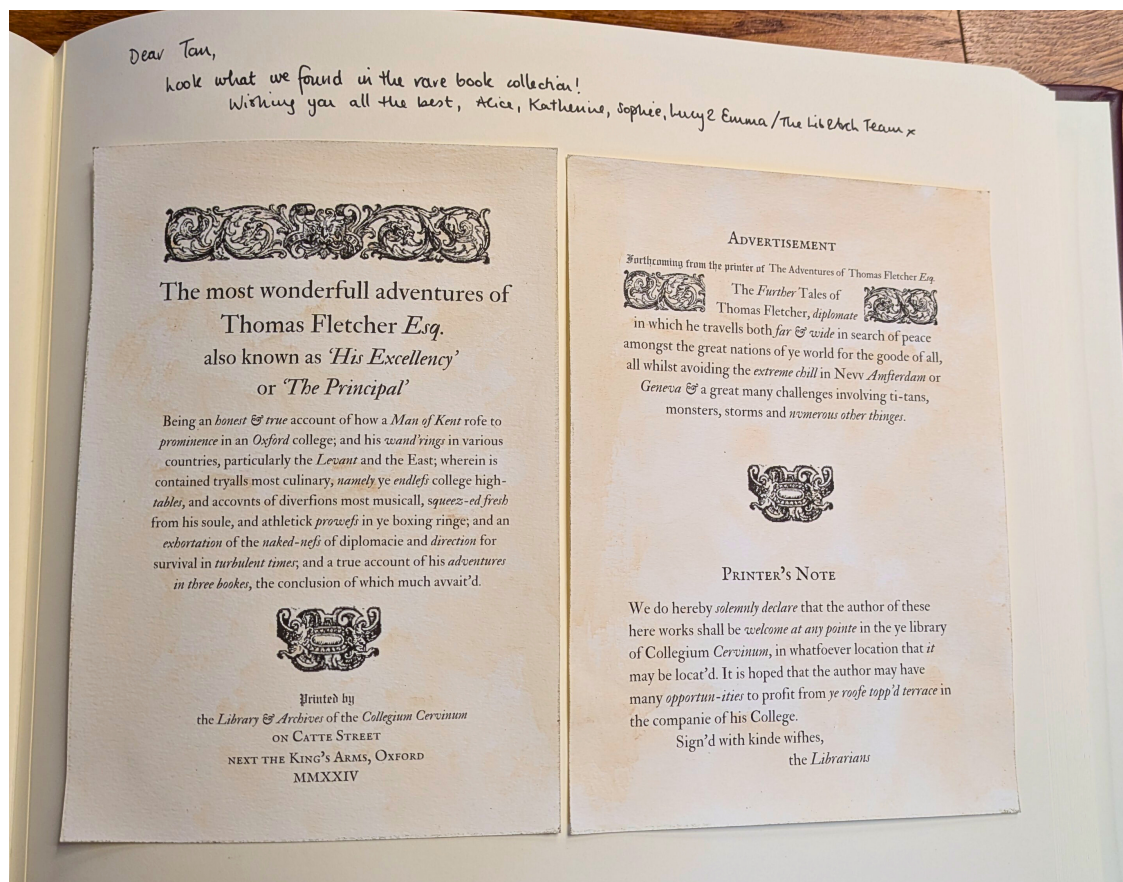 Dear Tom,
Look what we found in the rare book collection!
Wishing you all the best, Alice, Katherine, Sophie, Lucy & Emma/The Lib&Arch Team x
The most wonderfull adventures of
Thomas Fletcher Esq.
also known as ‘His Excellency’
or ‘The Principal’
Being an honest & true account of how a Man of Kent rofe to
prominence in an Oxford college; and his wand'rings in various
countries, particularly the Levant and the East; wherein is
contained tryalls most culinary, namely ye endlefs college high-
tables, and accovnts of diverfions most musicall, squeez-ed fresh
from his soule, and athletick prowefs in ye boxing ringe; and an
exhortation of the naked-nefs of diplomacie and direction for
survival in turbulent times; and a true account of his adventures
in three bookes, the conclusion of which much avvait'd.
Printed by
the Library & Archives of the Collegium Cervinum
ON CATTE STREET
NEXT THE KING'S ARMS, OXFORD
MMXXIV
ADVERTISEMENT
Forthcoming from the printer of The Adventures of Thomas Fletcher Esq.
The Further Tales of
Thomas Fletcher, diplomate
in which he travells both far & wide in search of peace
amongst the great nations of ye world for the goode of all,
all whilst avoiding the extreme chill in Nevv Amfterdam or
Geneva & a great many challenges involving ti-tans,
monsters, storms and nvmerous other thinges.
PRINTER'S NOTE
We do hereby solemnly declare that the author of these
here works shall be welcome at any pointe in the ye library
of Collegium Cervinum, in whatfoever location that it
may be locat'd. It is hoped that the author may have
many opportun-ities to profit from ye roofe topp'd terrace in
the companie of his College.
Sign'd with kinde wifhes,
the Librarians